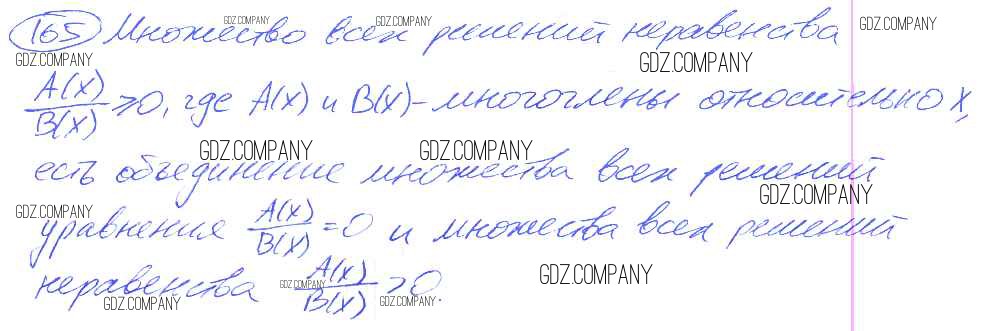 165 Множество всех решений неравенства
A(x)/B(x) ≥ 0, где A(x) и B(x) - многочлены относительно x,
есть объединение множества всех решений
уравнения A(x)/B(x) = 0 и множества всех решений
неравенства A(x)/B(x) > 0.
GDZ.COMPANY
GDZ.COMPANY
GDZ.COMPANY
GDZ.COMPANY
GDZ.COMPANY
GDZ.COMPANY
GDZ.COMPANY
GDZ.COMPANY
GDZ.COMPANY
GDZ.COMPANY
GDZ.COMPANY
GDZ.COMPANY
GDZ.COMPANY